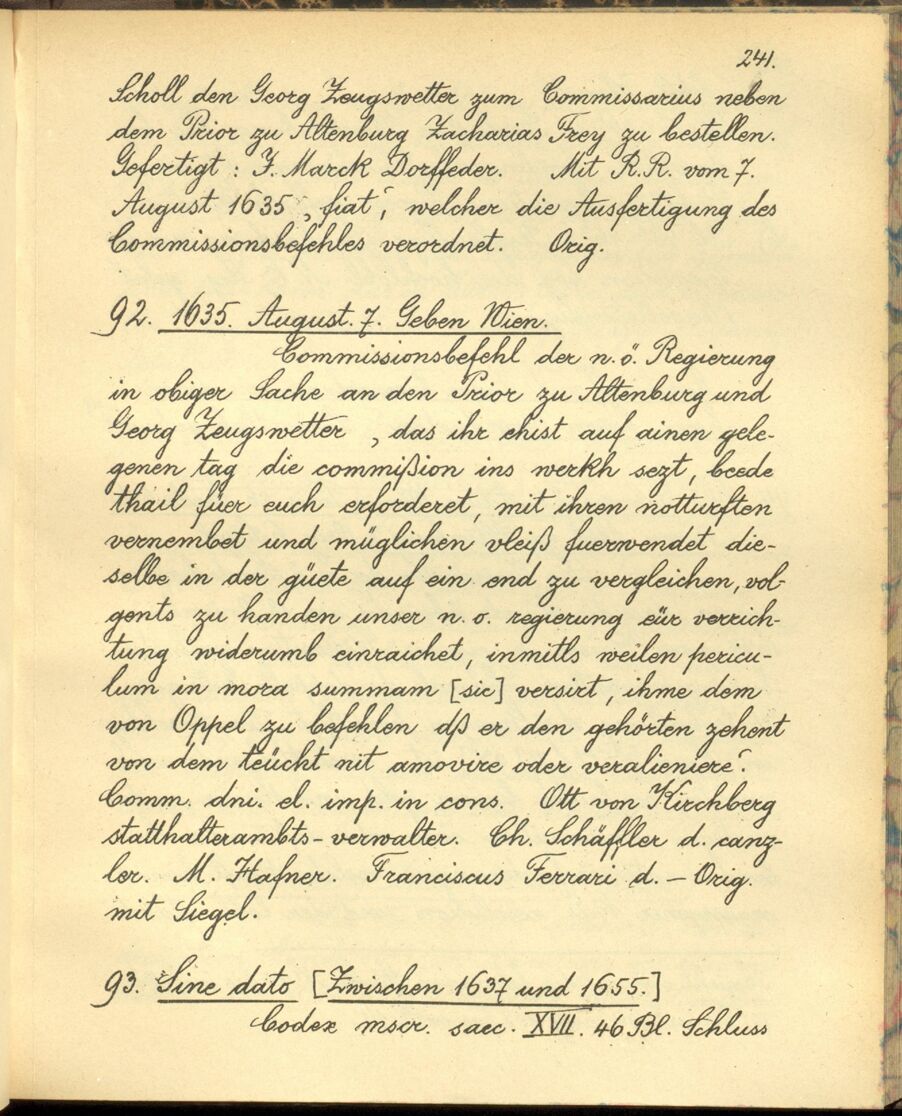 241.
Scholl den Georg Zeugswetter zum Commissarius neben
dem Prior zu Altenburg Zacharias Frey zu bestellen.
Gefertigt : J. Marck Dorffeder. Mit R. R. vom 7.
August 1635 ‚fiat‘, welcher die Ausfertigung des
Commissionsbefehles verordnet. Orig.
92. 1635. August. 7. Geben Wien.
Commissionsbefehl der n. ö. Regierung
in obiger Sache an den Prior zu Altenburg und
Georg Zeugswetter ‚das ihr ehist auf ainen gele-
genen tag die commißion ins werkh sezt, beede
thail füer euch erforderet, mit ihren notturften
vernembet und müglichen vleiß fuerwendet die-
selbe in der güete auf ein end zu vergleichen, vol-
gents zu handen unser n. o. regierung eür verrich-
tung widerumb einraichet, inmitls weilen pericu-
lum in mora summam [sic] versirt, ihme dem
von Oppel zu befehlen dß er den gehörten zehent
von dem teücht nit amovire oder veralieniere‘.
Comm. dni. el. imp. in cons. Ott von Kirchberg
statthalterambts-verwalter. Ch. Schäffler d. canz-
ler. M. Hafner. Franciscus Ferrari d. — Orig.
mit Siegel.
93. Sine dato [Zwischen 1637 und 1655.]
Codex mscr. saec. XVII. 46 Bl. Schluss